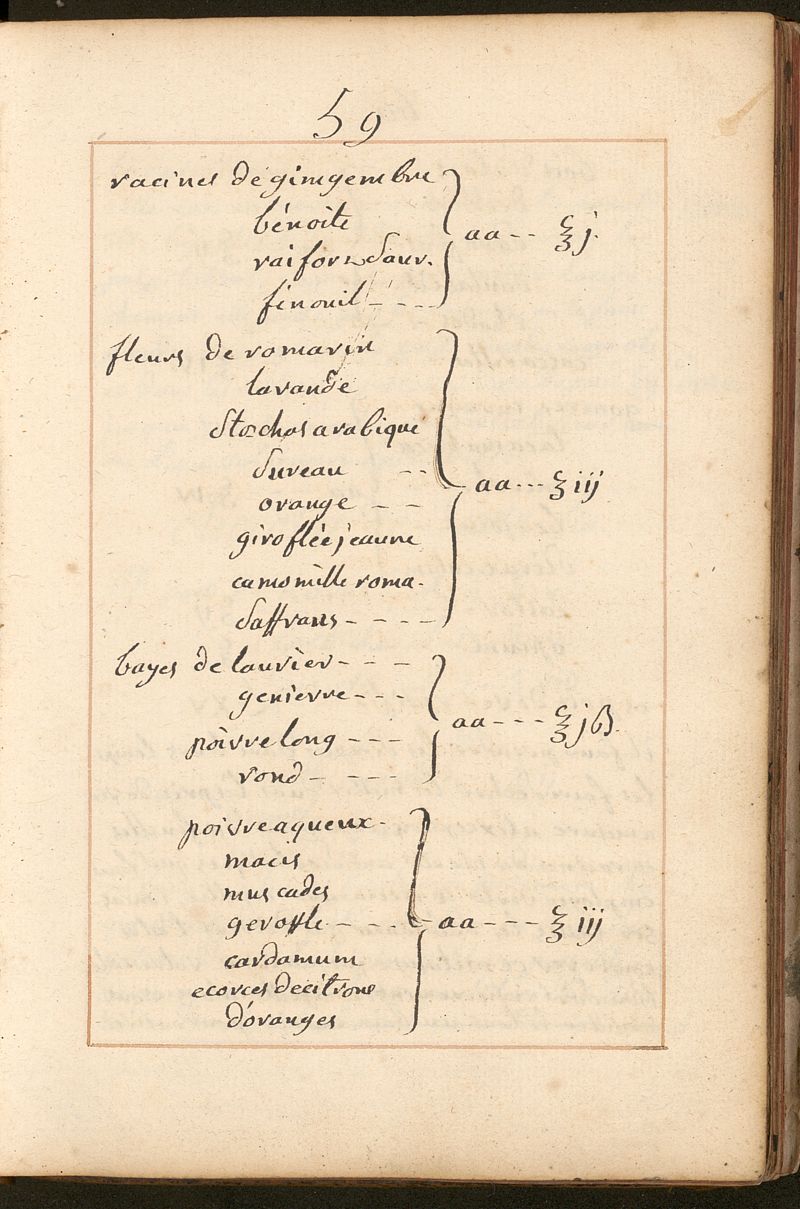 59
racines de gimgembre
bénoite
raifor sauv.
fénouil - - - - aa - - ℥ j.
fleurs de romarin
lavande
stœchas arabique
sureau - -
orange - - aa - - - ℥ iij
giroflée jeaune
camomille roma.
saffrans - - - -
bayes de laurier - - -
genievre - - -
poivre long - - - aa - - - ℥ jß.
rond - - - -
poivre aqueux -
macis
muscades
geroffle - - - - aa - - - ℥ iij
cardamum
ecorces de citrons
d'oranges